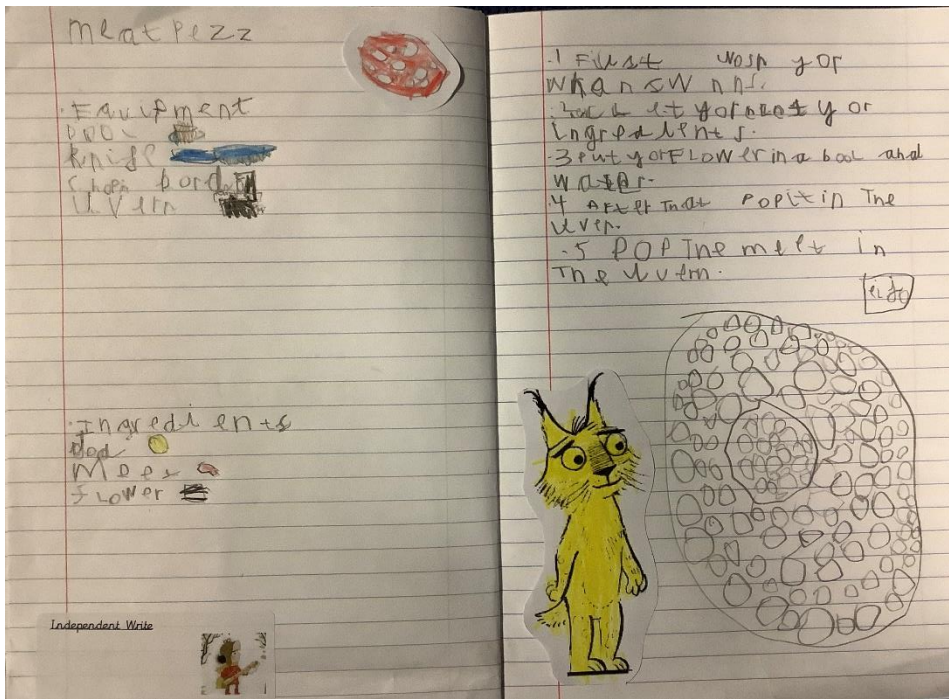 meatpezz
.Equipment
knife
Chopin bord
Uvern
.Ingredients
dod
Mees
flower
Independent Write
.1 First wosh yor
.2 yor
ingredients.
.3 put yor FLower in a bool and
water.
.4 After That Pop it in The
Uven.
.5 POP The melt in
The Uvern.